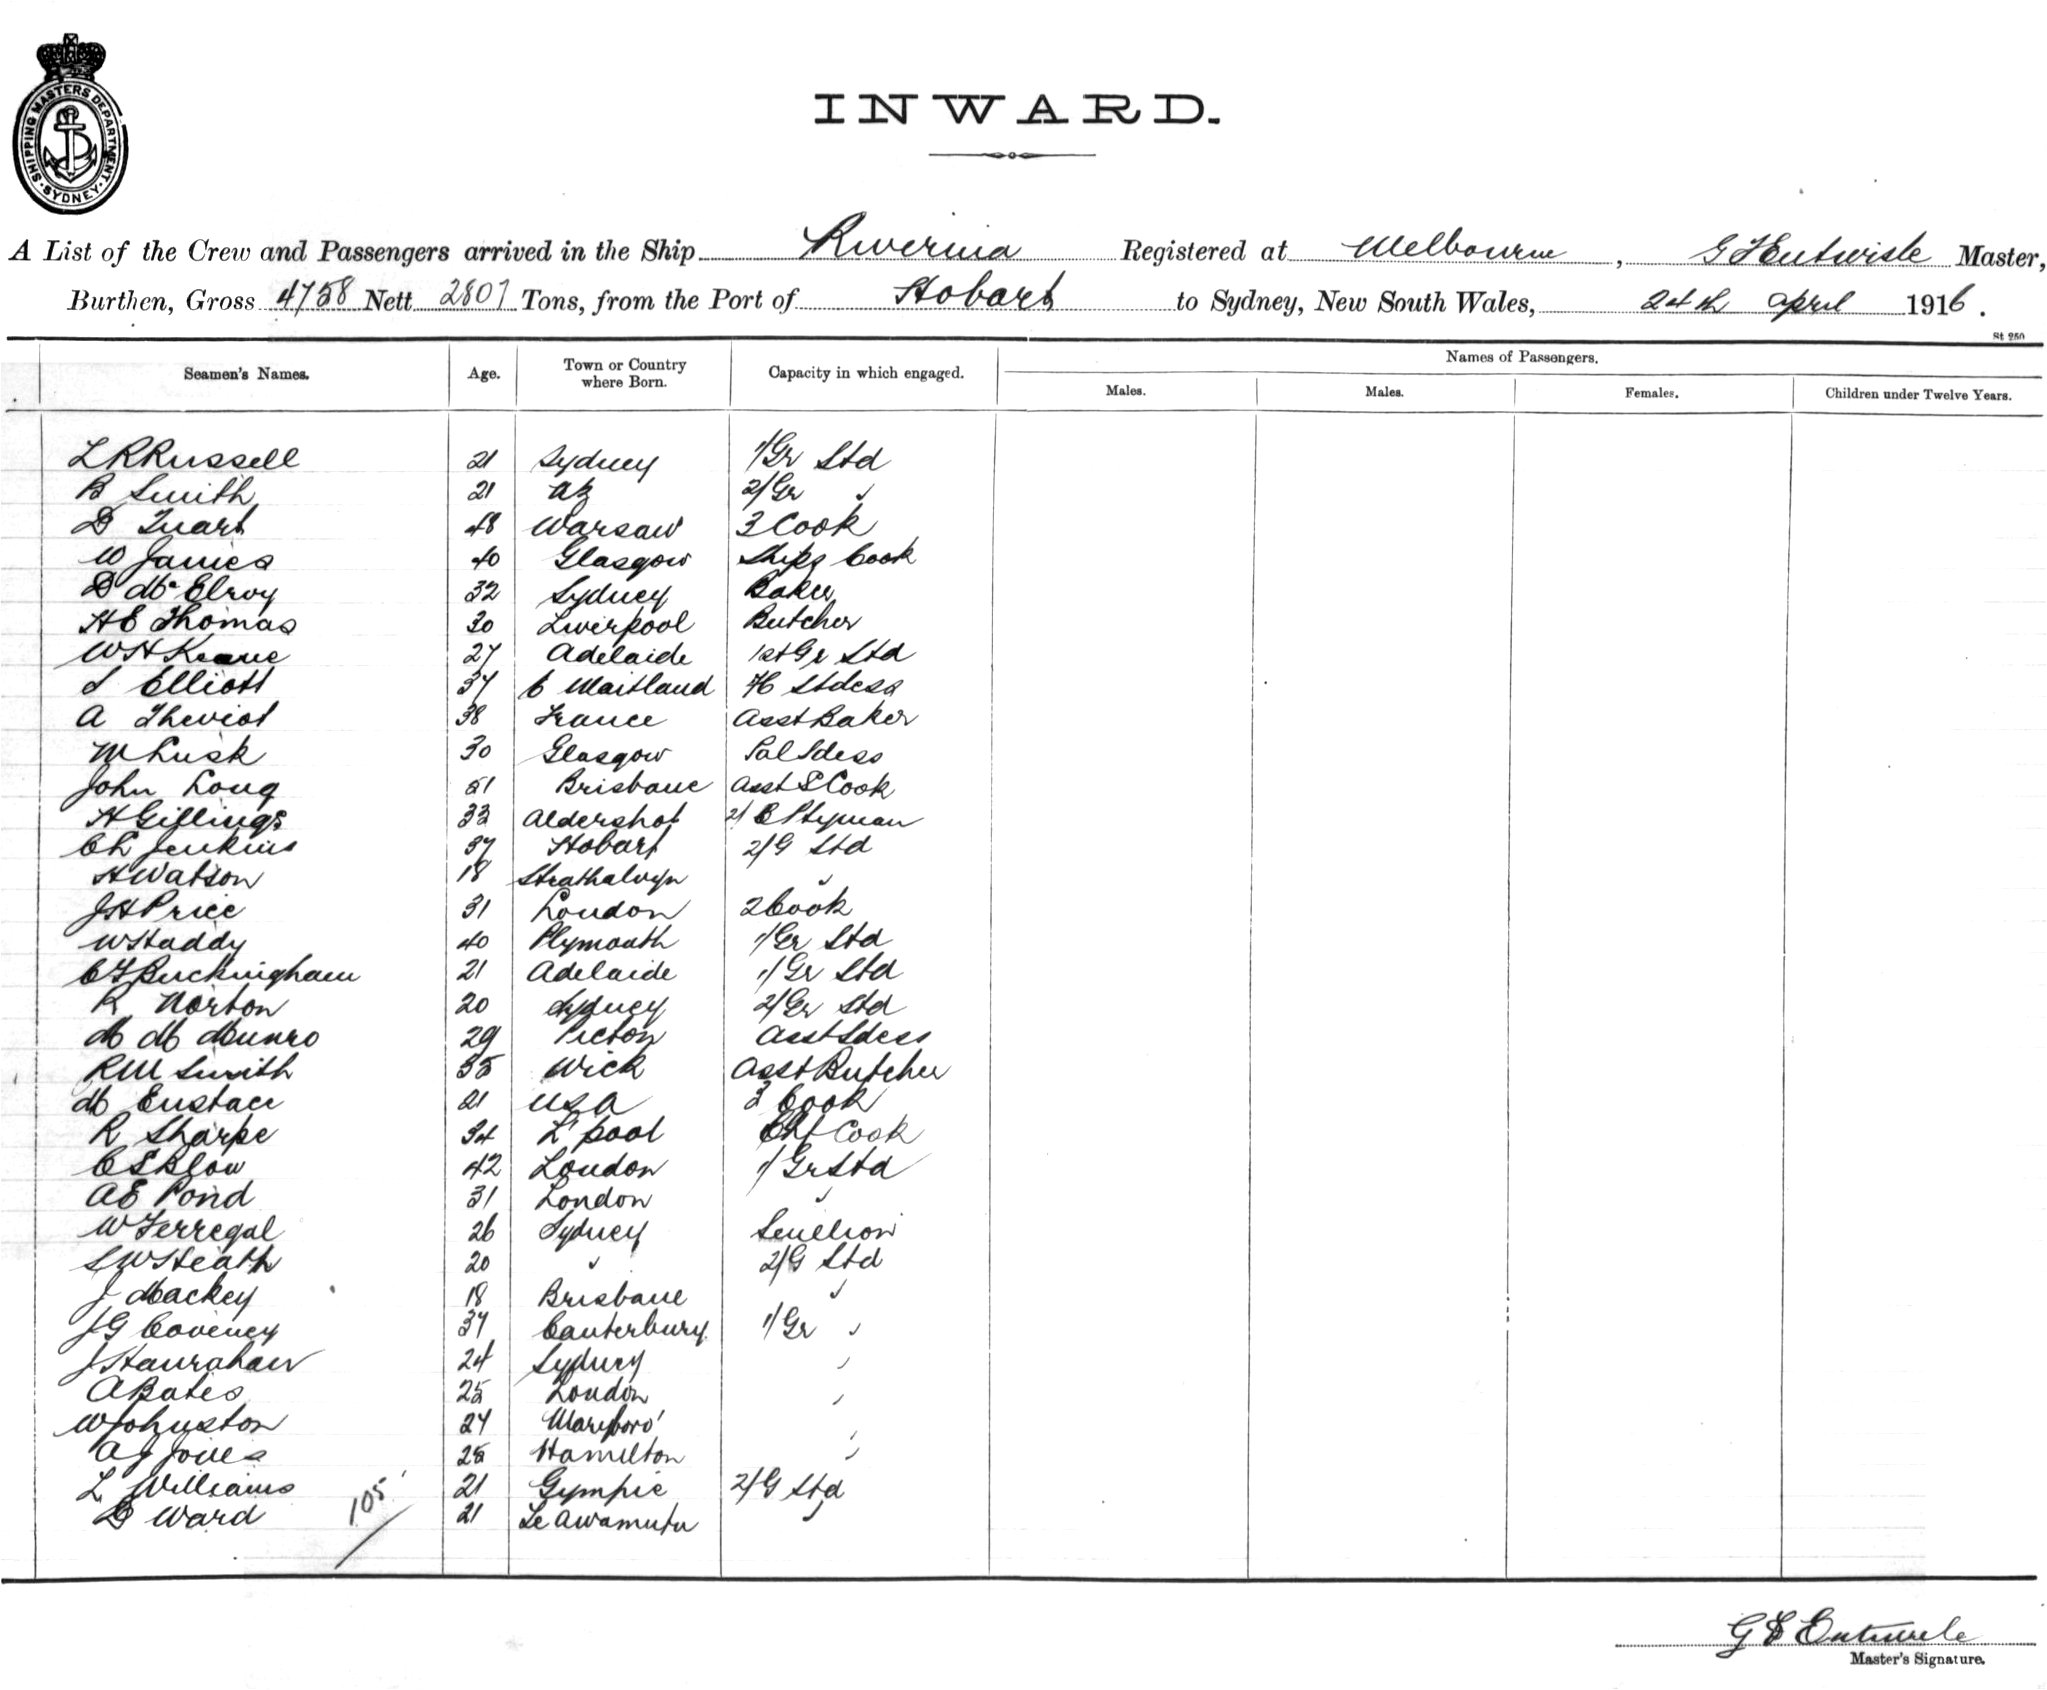 SHIPPING MASTERS DEPARTMENT. SYDNEY
INWARD.
A List of the Crew and Passengers arrived in the Ship Riverina Registered at Melbourne, G F Entwisle Master,
Burthen, Gross 4758 Nett 2807 Tons, from the Port of Hobart to Sydney, New South Wales, 24th April 1916.
St 250
Seamen's Names. Age. Town or Country where Born. Capacity in which engaged. Names of Passengers.
Males. Males. Females. Children under Twelve Years.
L R Russell 21 Sydney 1/Gr Std
B Smith 21 NZ 2/Gr "
D 48 Warsaw 3 Cook
W James 40 Glasgow Ships Cook
D McElroy 32 Sydney Baker
H E Thomas 30 Liverpool Butcher
W H Keane 27 Adelaide 1st Gr Std
S Elliott 37 E Maitland H Stdess
A Theviot 38 France Asst Baker
M Lusk 30 Glasgow Sal Sdess
John Long 51 Brisbane Asst S Cook
H Gillings 33 Aldershot 2/
C L Jenkins 37 Hobart 2/G Std
H Watson 18 Strathalvyn "
J H Price 31 London 2 Cook
W Haddy 40 Plymouth 1/Gr Std
C F Buckingham 21 Adelaide 1/Gr Std
R Norton 20 Sydney 2/Gr Std
M M Munro 29 Picton Asst Sdess
R M Smith 35 Wick Asst Butcher
M Eustace 21 USA 3 Cook
R Sharpe 34 L'pool Chf Cook
C E Blow 42 London 1/Gr Std
A E Pond 31 London "
W Ferregal 26 Sydney Scullion
S W Heath 20 " 2/G Std
J Mackey 18 Brisbane "
J G Coveney 37 Canterbury 1/Gr "
J Hanrahan 24 Sydney "
A Bates 25 London "
W Johnston 27 Maryboro' "
A J Jones 25 Hamilton "
L Williams 21 Gympie 2/G Std
D Ward 105 21 Te Awamutu "
G F Entwisle
Master's Signature.